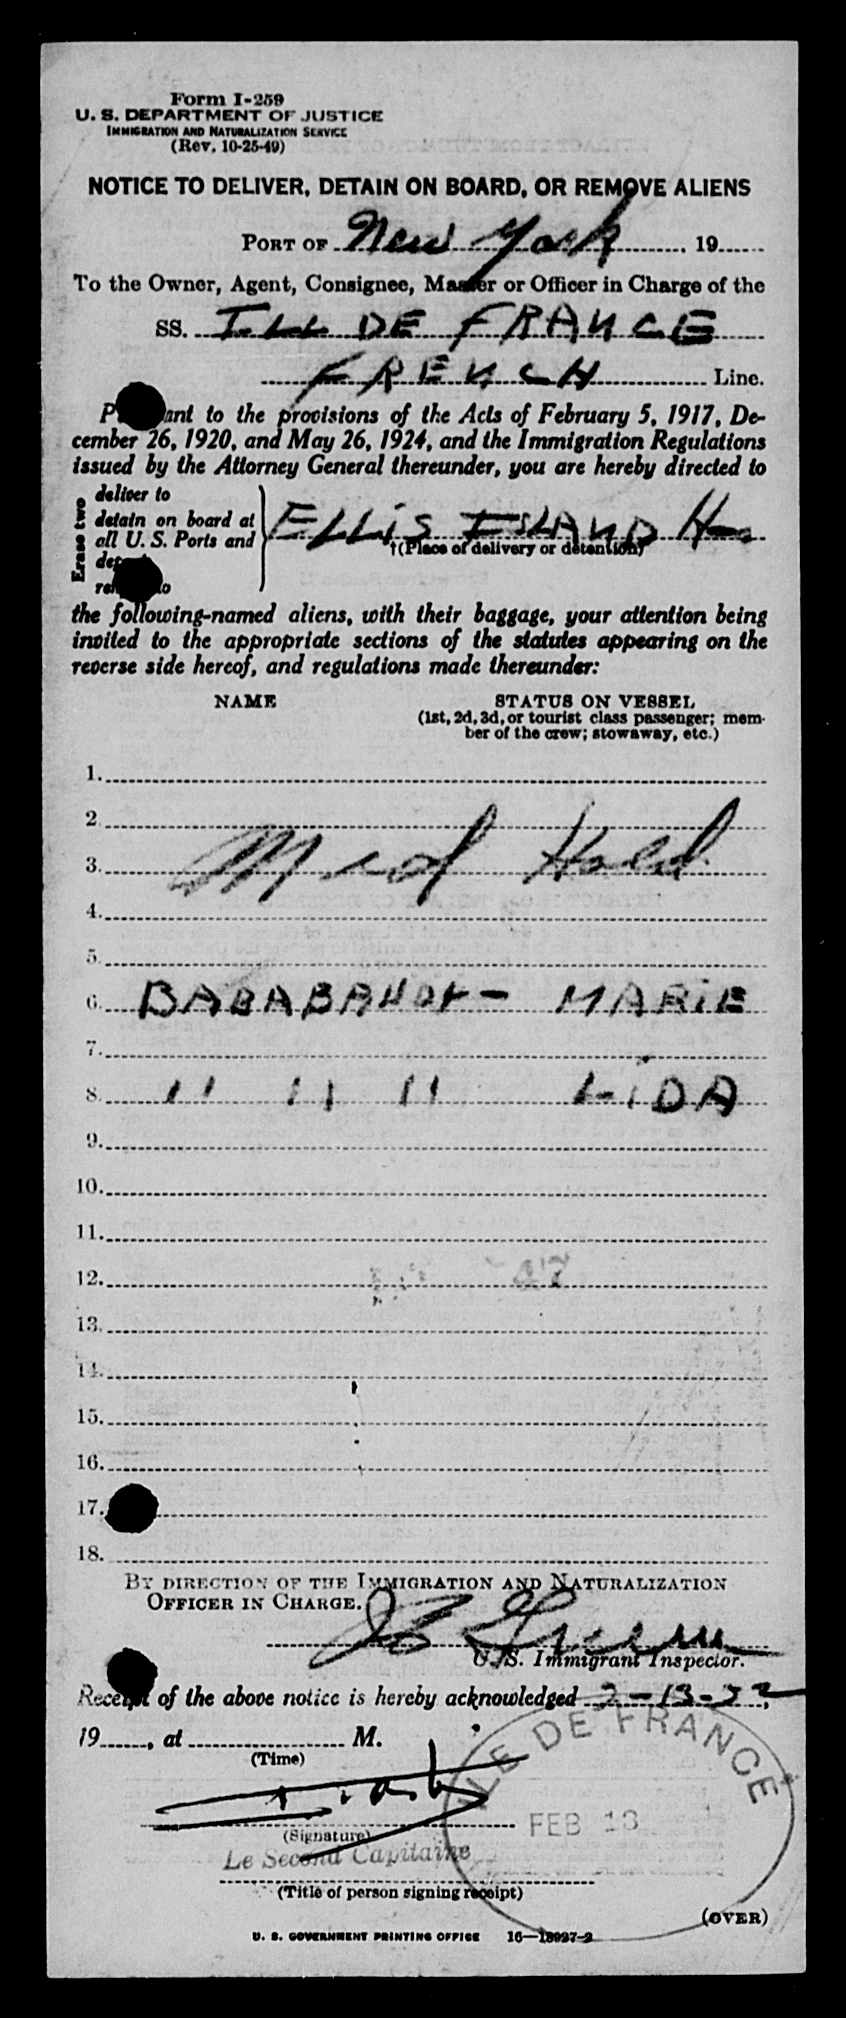 Form I-259
U. S. DEPARTMENT OF JUSTICE
IMMIGRATION AND NATURALIZATION SERVICE
(Rev. 10-25-49)
NOTICE TO DELIVER, DETAIN ON BOARD, OR REMOVE ALIENS
PORT OF New York, 19
To the Owner, Agent, Consignee, Master or Officer in Charge of the
SS. ILL DE FRANCE
FRENCH Line.
P ant to the provisions of the Acts of February 5, 1917, De-
cember 26, 1920, and May 26, 1924, and the Immigration Regulations
issued by the Attorney General thereunder, you are hereby directed to
Erase two
deliver to
detain on board at
all U. S. Ports and
ELLIS ISLAND
†(Place of delivery or detention)
the following-named aliens, with their baggage, your attention being
invited to the appropriate sections of the statutes appearing on the
reverse side hereof, and regulations made thereunder:
NAME STATUS ON VESSEL
(1st, 2d, 3d, or tourist class passenger; mem-
ber of the crew; stowaway, etc.)
1.
2.
3. Med Hold
4.
5.
6. MARIE
7.
8. " " " LIDA
9.
10.
11.
12.
13.
14.
15.
16.
17.
18.
BY DIRECTION OF THE IMMIGRATION AND NATURALIZATION
OFFICER IN CHARGE.
U. S. Immigrant Inspector.
Receipt of the above notice is hereby acknowledged
19, at M.
(Time)
ILE DE FRANCE
FEB 13
(Signature)
Le Second Capitaine
(Title of person signing receipt)
(OVER)
U. S. GOVERNMENT PRINTING OFFICE 16—18927-2